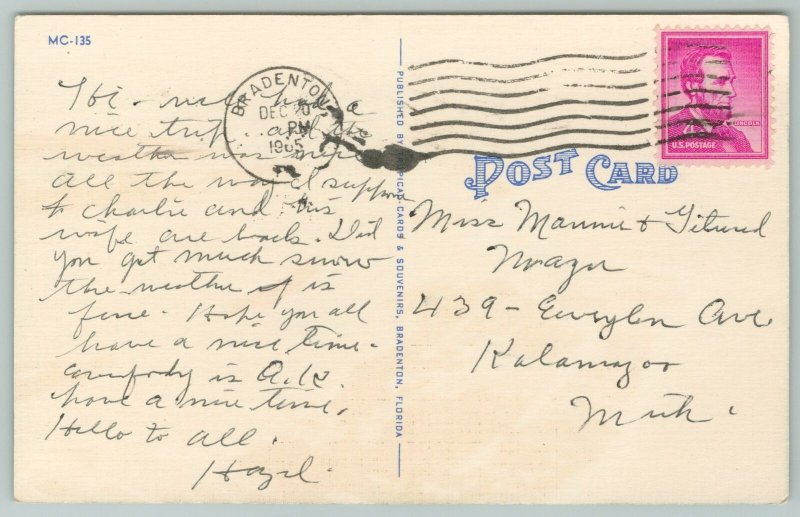 MC-135
Hi - we had a
nice trip. all the
weather was nice
all the way I suppose
& Charlie and his
wife are back. Did
you get much snow
the weather is
fine. Hope you all
have a nice time.
everybody is O.K.
have a nice time.
Hello to all.
Hazel.
BRADENTON
DEC
PM
1965
PUBLISHED BY TROPICAL CARDS & SOUVENIRS, BRADENTON, FLORIDA
LINCOLN
U.S. POSTAGE
POST CARD
Miss Mannie &
439 - Ave
Kalamazoo
Mich.